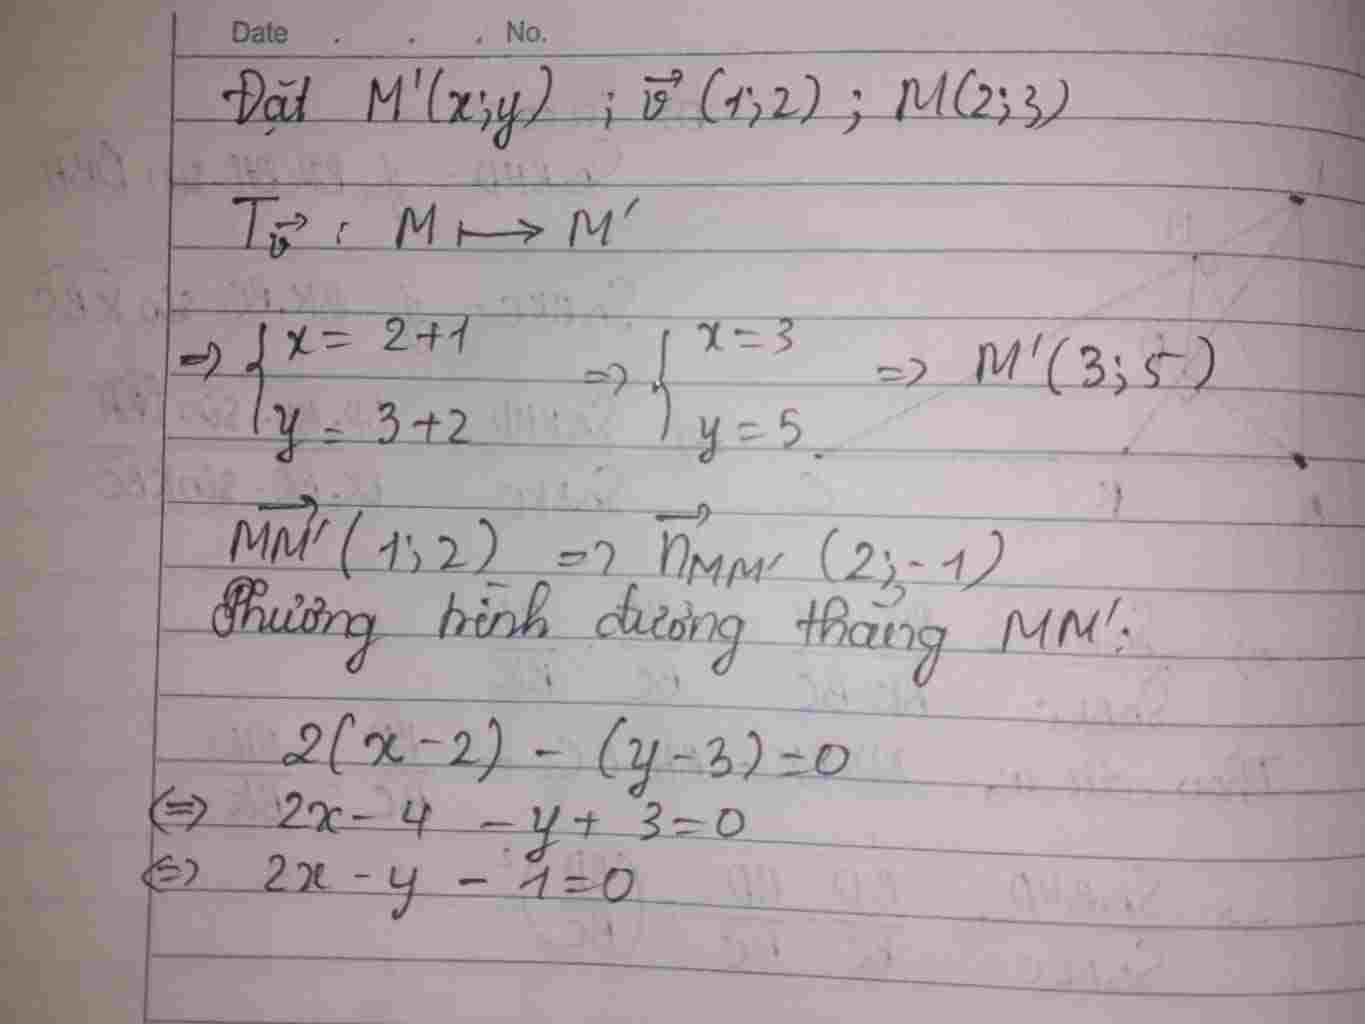 Date . . . No.
Đặt M'(x;y) ; v⃗ (1;2) ; M(2;3)
T_v⃗ : M ⟼ M'
=> { x = 2+1 => { x = 3 => M'(3;5)
y = 3+2 y = 5
MM'⃗ (1;2) => n⃗_MM' (2;-1)
Phương trình đường thẳng MM':
2(x-2) - (y-3)=0
<=> 2x - 4 - y + 3=0
<=> 2x - y - 1=0